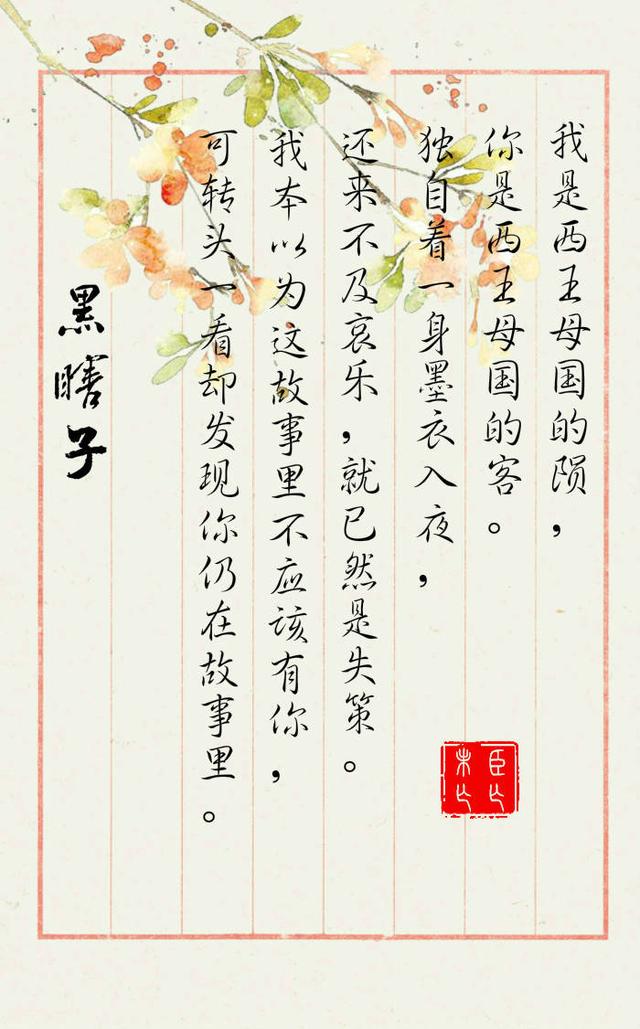 我是西王母国的陨，
你是西王母国的客。
独自着一身墨衣入夜，
还来不及哀乐，就已然是失策。
我本以为这故事里不应该有你，
可转头一看却发现你仍在故事里。
黑瞎子